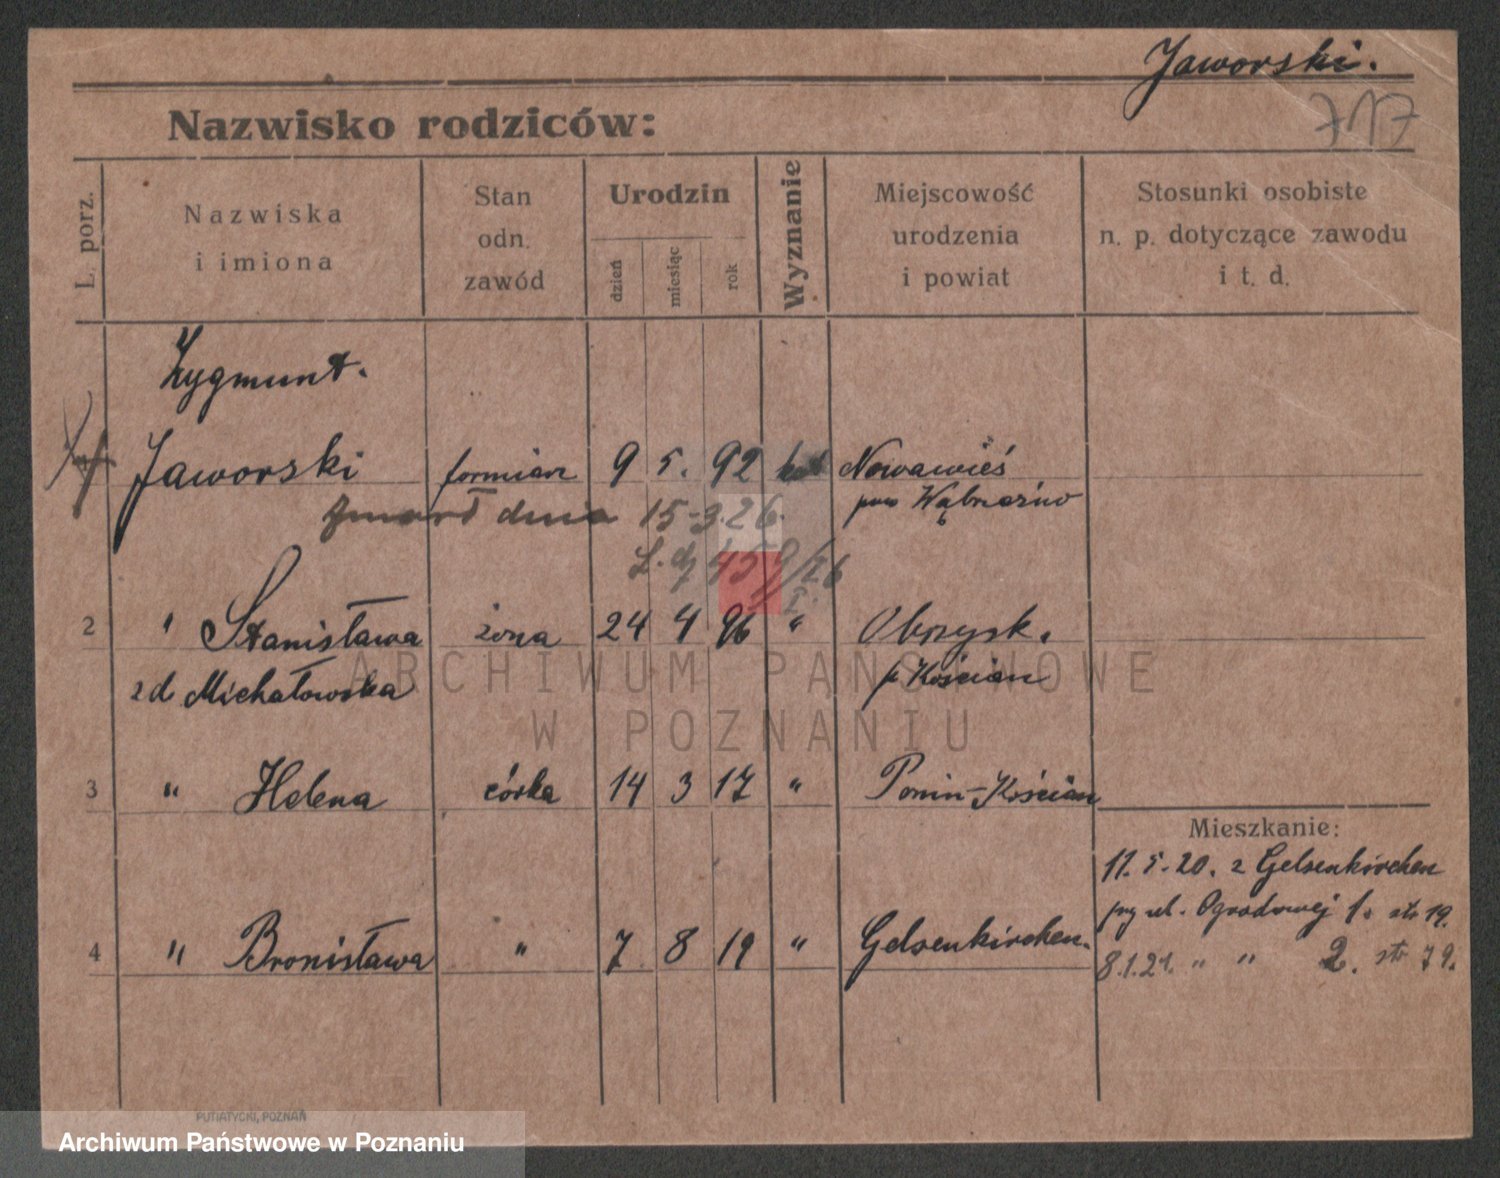 Jaworski.
717
Nazwisko rodziców:
L. porz.
Nazwiska
i imiona
Stan
odn.
zawód
Urodzin
dzień
miesiąc
rok
Wyznanie
Miejscowość
urodzenia
i powiat
Stosunki osobiste
n. p. dotyczące zawodu
i t. d.
Zygmunt.
Jaworski formierz 9 5. 92 kat Nowawieś
pow Wąbrzeźno
zmarł dnia 15-3.26.
L. dz 459/26
2 " Stanisława żona 24 4 96 " Obrzysk.
z d Michałowska p Kościan
3 " Helena córka 14 3 17 " Ponin-Kościan
Mieszkanie:
11. 5. 20. z Gelsenkirchen
przy ul. Ogrodowej 1. str 19.
4 " Bronisława " 7 8 19 " Gelsenkirchen.
8.1.21. " " 2. str 79.
PUTIATYCKI, POZNAŃ
ARCHIWUM PAŃSTWOWE
W POZNANIU
Archiwum Państwowe w Poznaniu